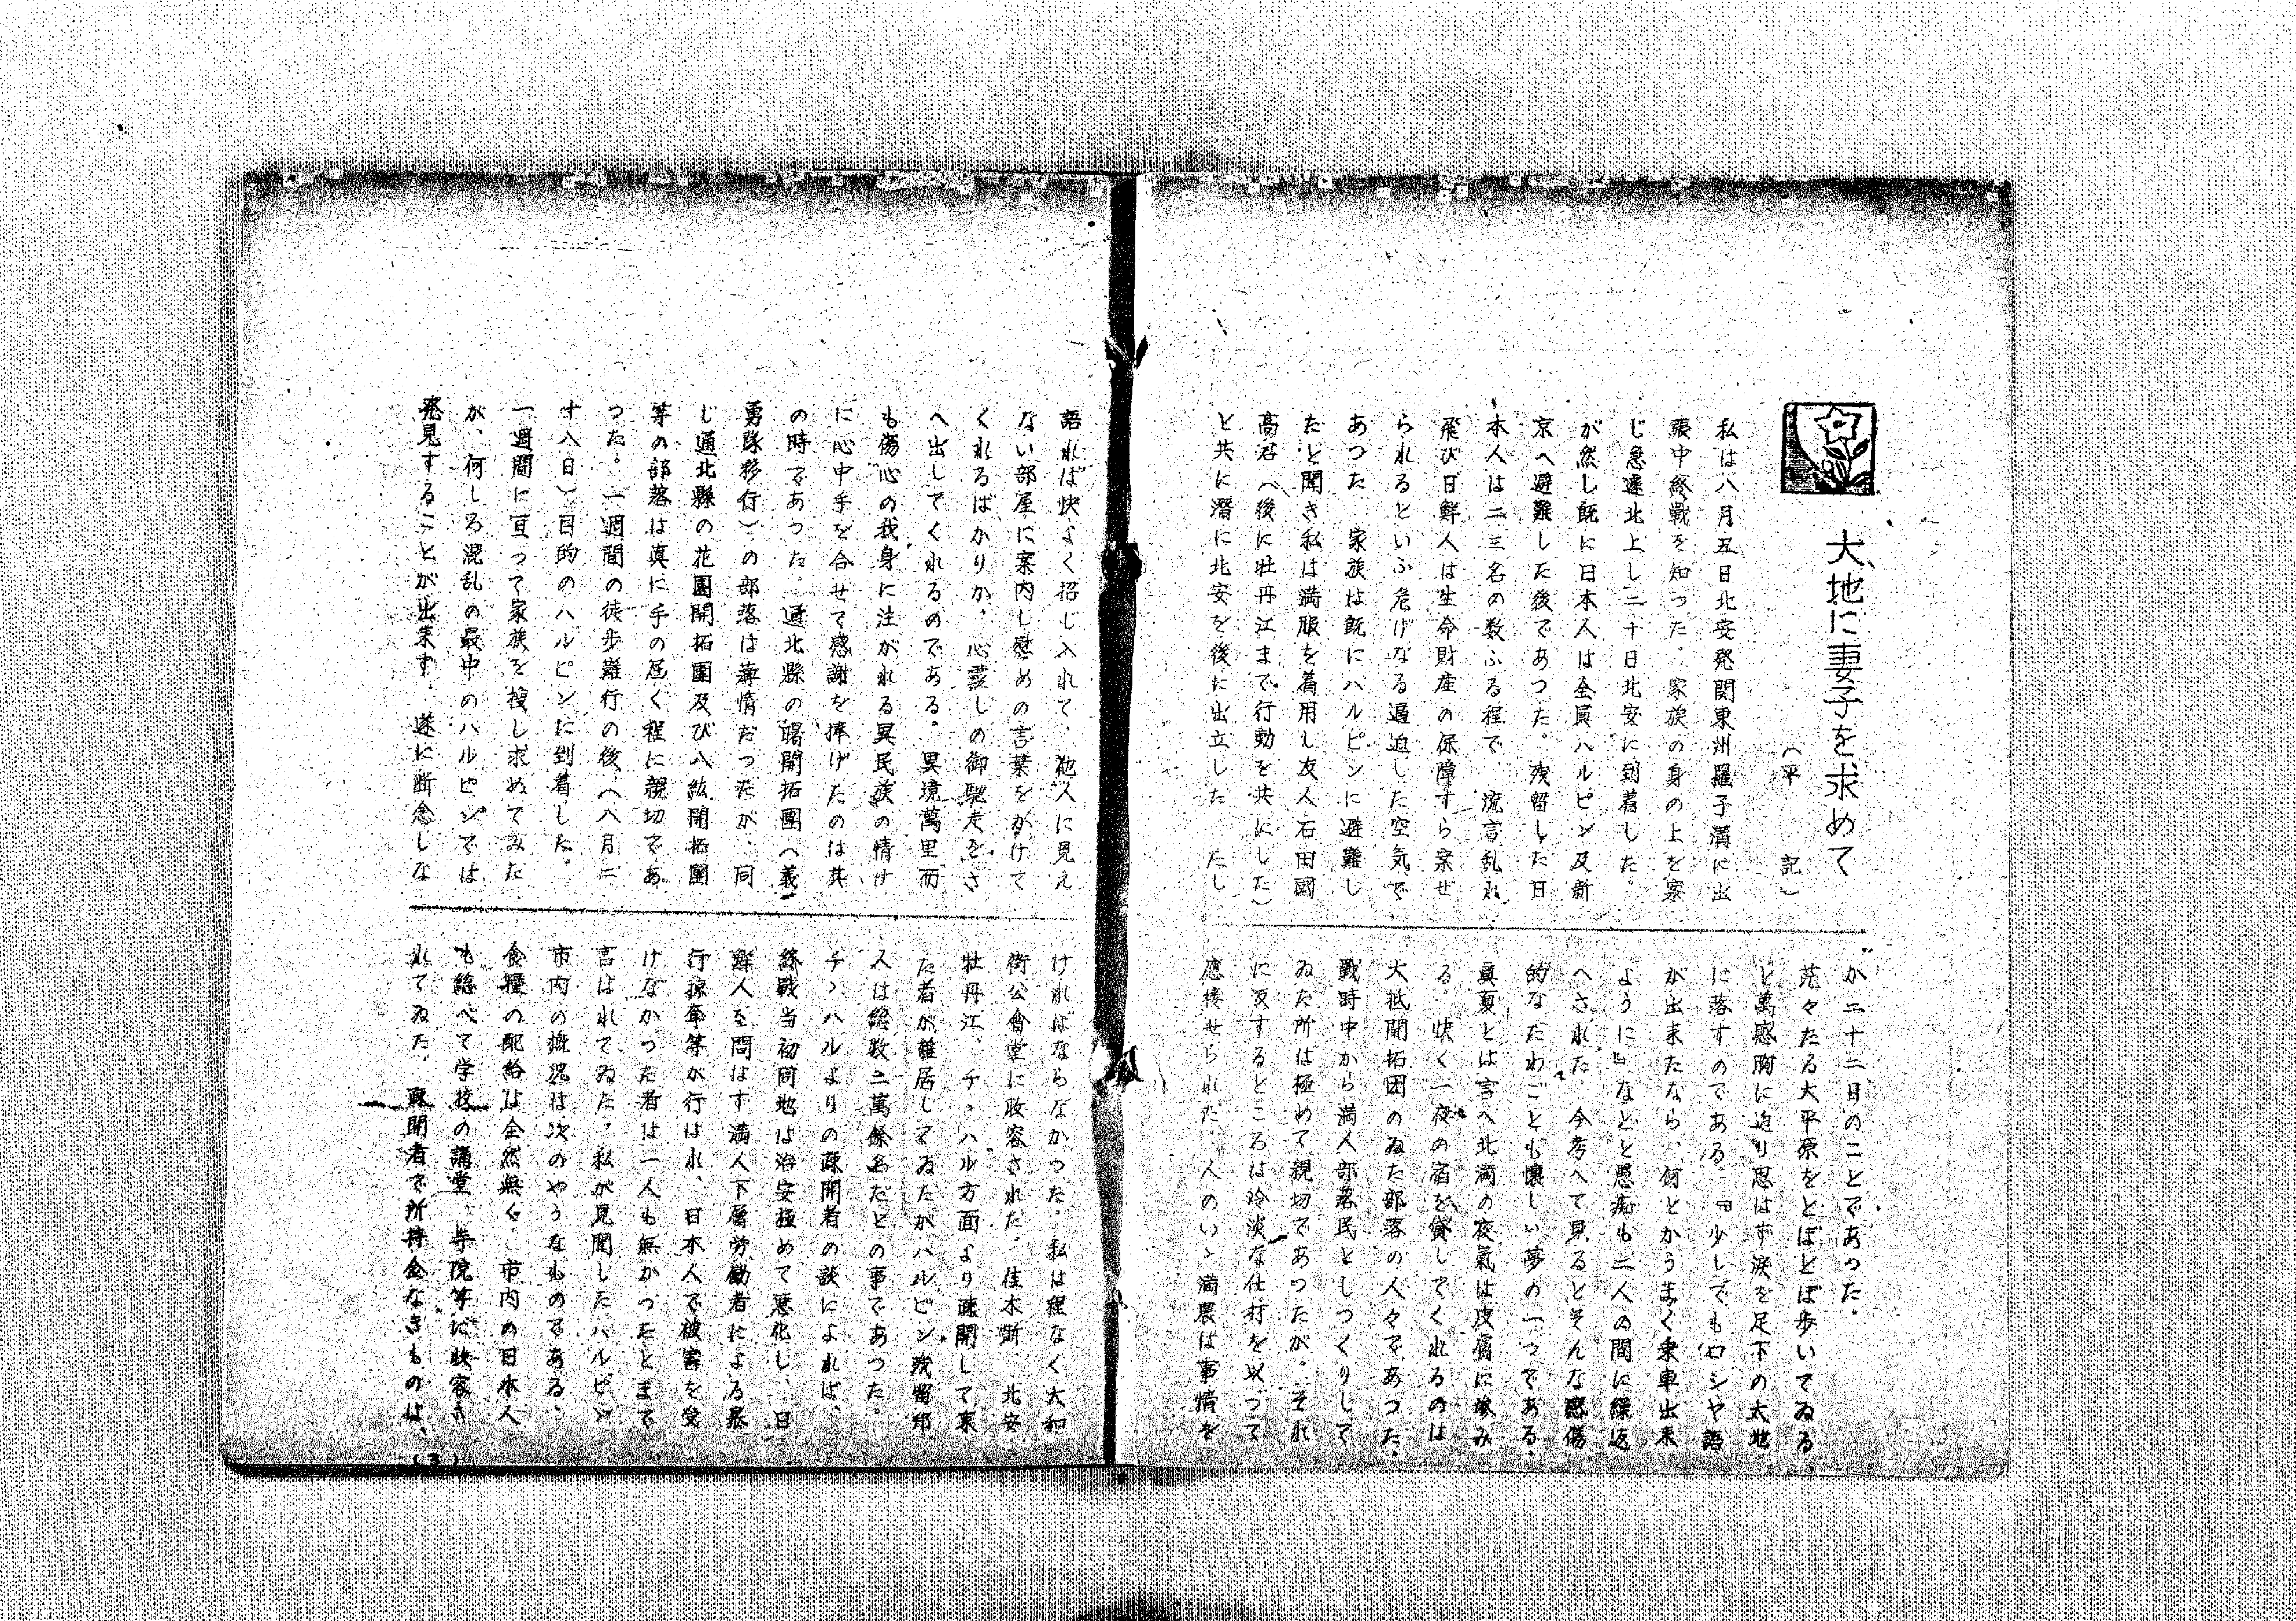 大地に妻子を求めて
（平　記）
私は八月五日北安発関東州羅子溝に出
張中終戦を知った。家族の身の上を案
じ急遽北上し二十日北安に到着した。
が然し既に日本人は全員ハルピン及新
京へ避難した後であつた。残留した日
本人は二三名の数ふる程で、流言乱れ
飛び日鮮人は生命財産の保障すら案ぜ
られるといふ危げなる逼迫した空気で
あつた　家族は既にハルピンに避難し
たと聞き私は満服を着用し友人石田國
高君（後に牡丹江まで行動を共にした）
と共に潜に北安を後に出立した　たし
が二十二日のことであった。
茫々たる大平原をとぼとぼ歩いてゐる
と萬感胸に迫り思はず涙を足下の大地
に落すのである。『少しでもロシヤ語
が出来たなら、何とかうまく乗車出来
ように』などと愚痴も二人の間に繰返
へされた。今考へて見るとそんな感傷
的なたわごとも懐しい夢の一つである。
真夏とは言へ北満の夜氣は皮膚に滲み
る。快く一夜の宿を貸してくれるのは
大抵開拓団のゐた部落の人々であつた。
戰時中から満人部落民としつくりして
ゐた所は極めて親切であつたが。それ
に反するところは冷淡な仕打を以つて
應接せられた、人のいゝ満農は事情を
語れば快よく招じ入れて、他人に見え
ない部屋に案内し慰めの言葉をかけて
くれるばかりか、心盡しの御馳走をさ
へ出してくれるのである。異境萬里而
も傷心の我身に注がれる異民族の情け
に心中手を合せて感謝を捧げたのは其
の時であつた。通北縣の曙開拓團（義
勇隊移行）の部落は薄情だつたが、同
じ通北縣の花園開拓團及び八紘開拓團
等の部落は真に手の届く程に親切であ
つた。一週間の徒歩難行の後、（八月二
十八日）目的のハルピンに到着した。
一週間に亘って家族を捜し求めてみた
が、何しろ混乱の最中のハルピンでは
発見することが出来ず、遂に断念しな
ければならなかつた。私は程なく大和
街公會堂に收容された。佳木斯、北安
牡丹江、チゝハル方面より疎開して来
た者が雑居してゐたがハルピン残留邦
人は総数二萬餘名だとの事であつた。
チゝハルよりの疎開者の談によれば、
終戰当初同地は治安極めて悪化し、日
鮮人を問はず満人下層労働者による暴
行掠奪等が行はれ、日本人で被害を受
けなかつた者は一人も無かつたとまで
言はれてゐた。私が見聞したハルピン
市内の概況は次のやうなものである。
食糧の配給は全然無く、市内の日本人
も総べて学校の講堂、寺院等に收容さ
れてゐた。疎開者で所持金なきものは、
（3）